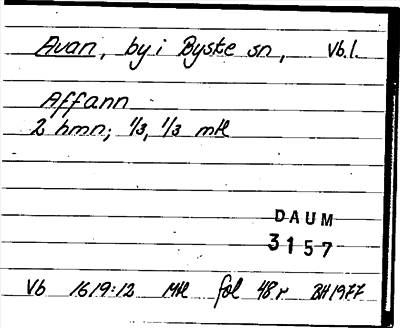 Avan, by i Byske sn, Vb.l.
Affann
2 hmn; 1/3, 1/3 mtl
DAUM
3157
Vb 1619:12 Mtl fol 48r BH 1977